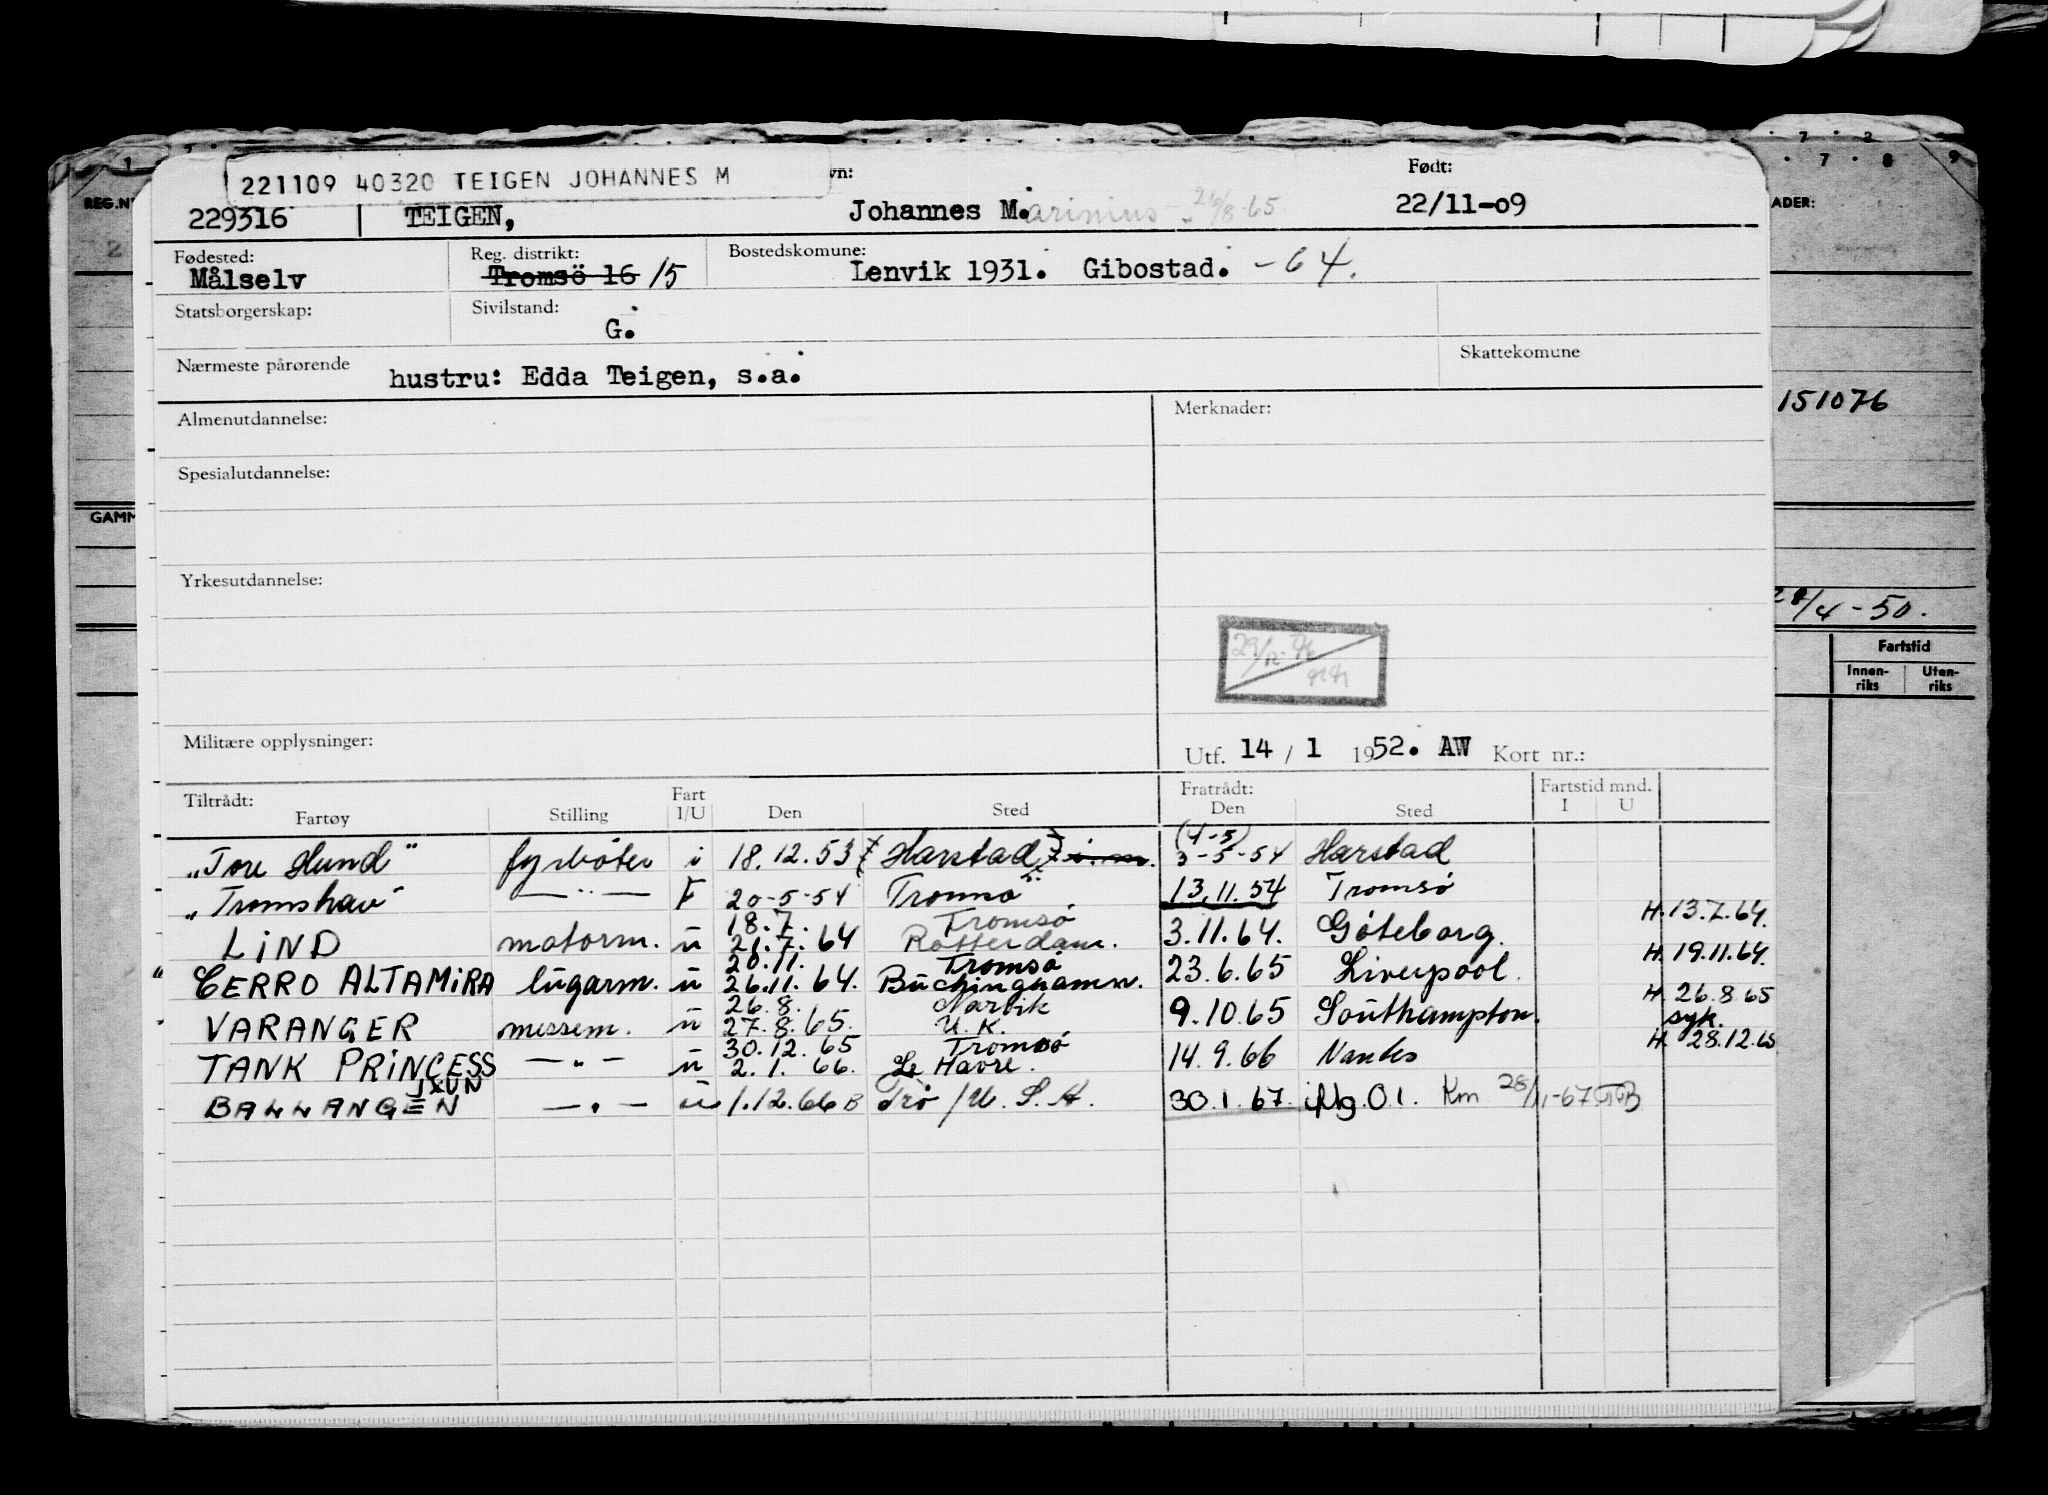 221109 40320 TEIGEN JOHANNES M
vn:
Født:
229316 TEIGEN, Johannes M.arinius 26/8-65 22/11-09
Fødested: Reg. distrikt: Bostedskomune:
Målselv Tromsö 16 15 Lenvik 1931. Gibostad. -64.
Statsborgerskap: Sivilstand:
G.
Nærmeste pårørende Skattekomune
hustru: Edda Teigen, s.a.
Almenutdannelse: Merknader:
Spesialutdannelse:
Yrkesutdannelse:
29/12-76
Militære opplysninger:
Utf. 14 / 1 1952. AW Kort nr.:
Tiltrådt: Fratrådt: Fartstid mnd.
Fartøy Stilling Fart I/U Den Sted Den Sted I U
"Tore Hund" fyrbøter i 18.12.53 Harstad (4-5) 3-5-54 Harstad
"Tromshav" —"— F 20-5-54 Tromsø 13.11.54 Tromsø
H. 13.7.64.
18.7. Tromsø
LIND motorm. u 21.7.64 Rotterdam. 3.11.64. Göteborg.
H. 19.11.64.
20.11. Tromsø
" CERRO ALTAMIRA lugarm. u 26.11.64. 23.6.65 Liverpool.
H. 26.8.65
26.8. Narvik
VARANGER messem. u 27.8.65. U.K. 9.10.65 Southampton.
syk.
H. 28.12.65
30.12.65 Tromsø
TANK PRINCESS —"— u 2.1.66. Le Havre. 14.9.66 Nantes
BALLANGEN —"— u 1.12.66 B /U.S.A. 30.1.67. Mg.01. Km 28/11-67
REG.N
GAMM
ADER:
151076
28/4-50.
Fartstid
Innen-riks Uten-riks